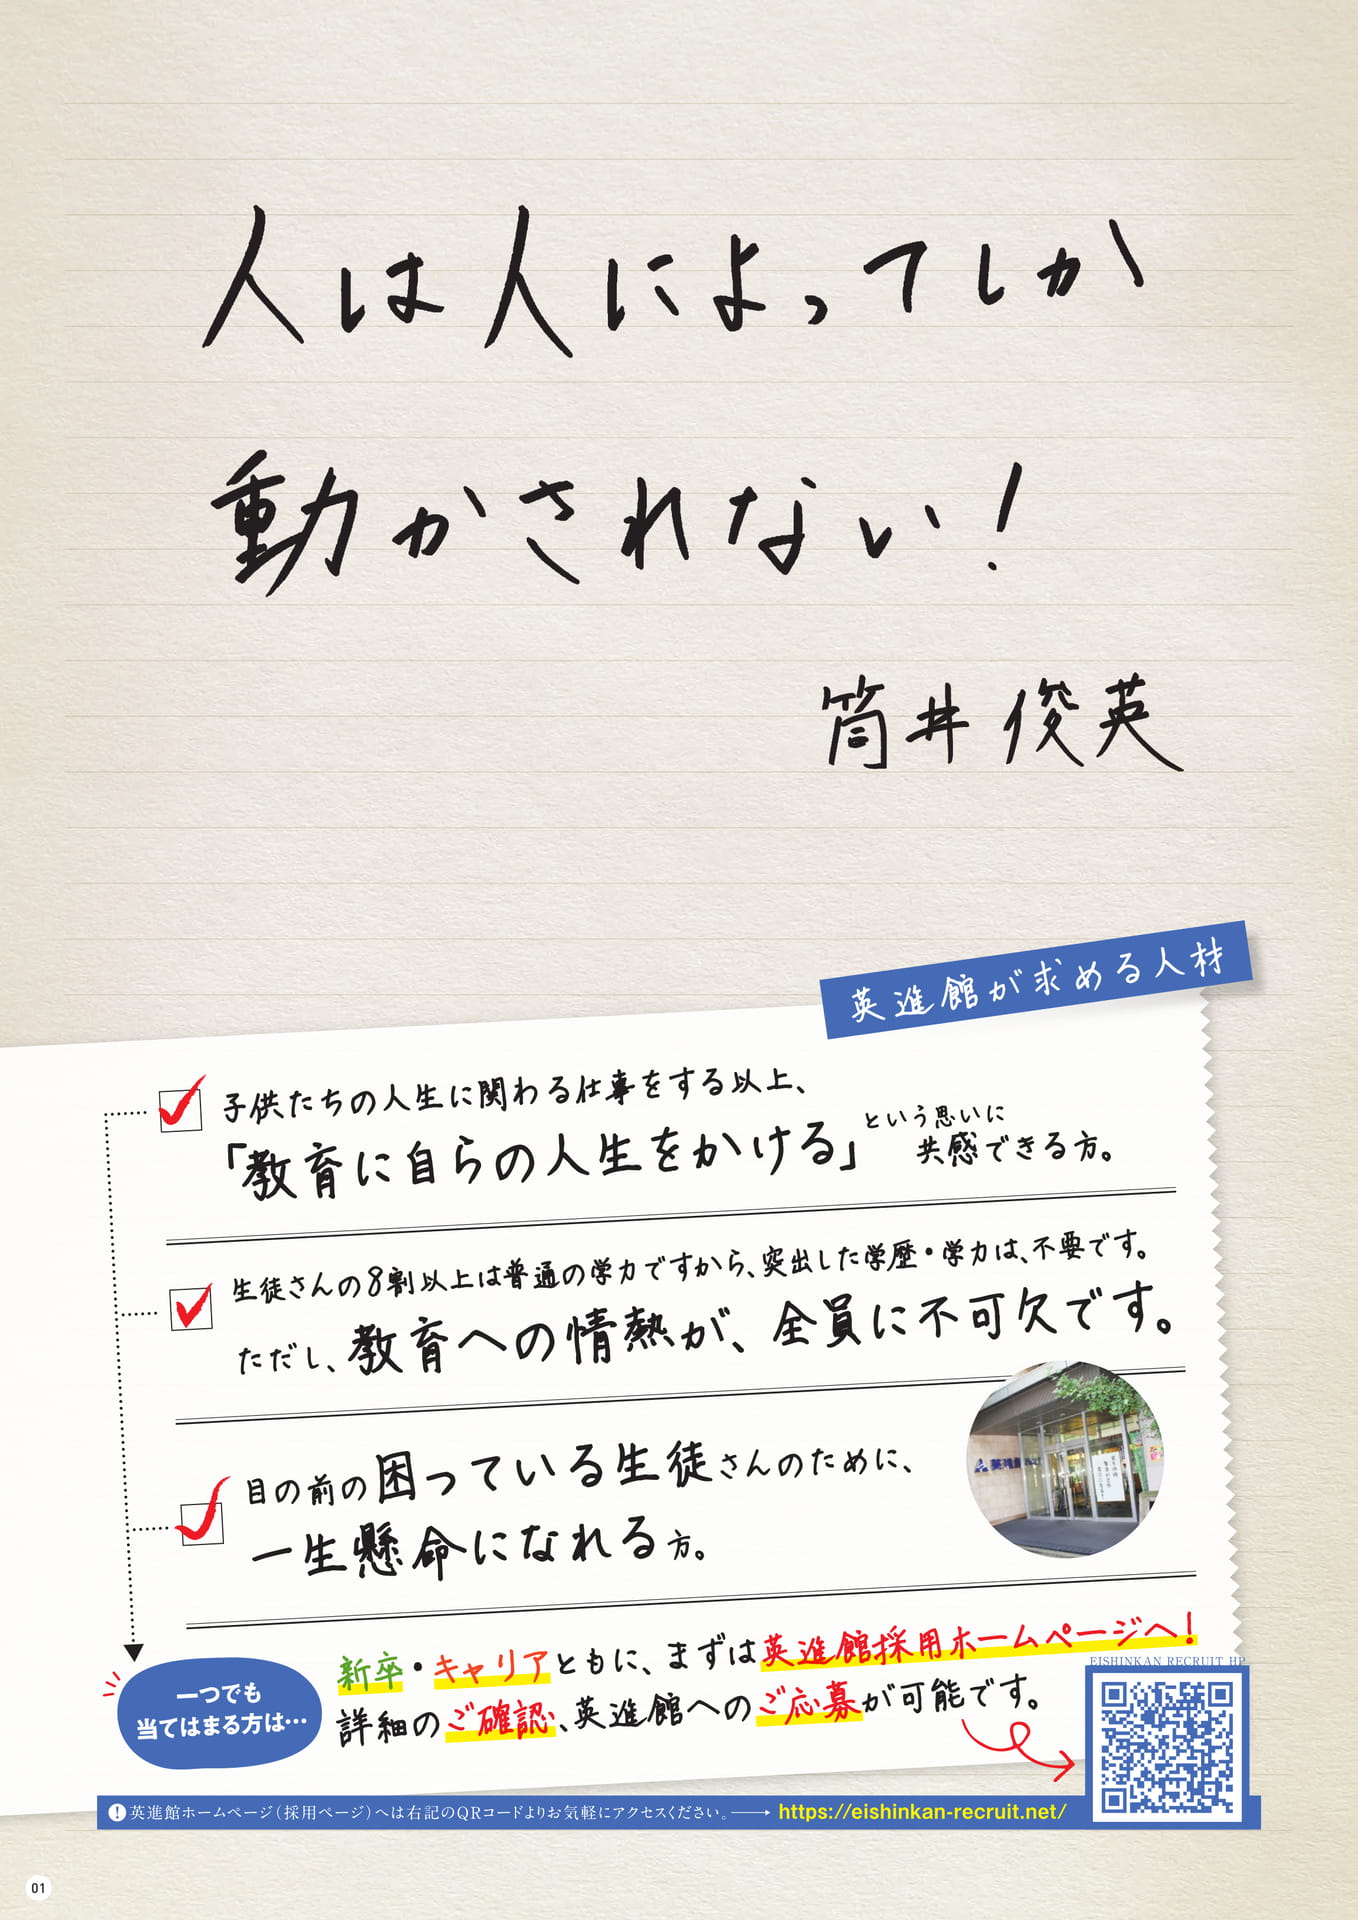 人は人によってしか
動かされない！
筒井 俊英
英進館が求める人材
子供たちの人生に関わる仕事をする以上、
「教育に自らの人生をかける」という思いに
共感できる方。
生徒さんの8割以上は普通の学力ですから、突出した学歴・学力は、不要です。
ただし、教育への情熱が、全員に不可欠です。
目の前の困っている生徒さんのために、
一生懸命になれる方。
一つでも
当てはまる方は…
新卒・キャリアともに、まずは英進館採用ホームページへ！
詳細のご確認、英進館へのご応募が可能です。
EISHINKAN RECRUIT HP
! 英進館ホームページ（採用ページ）へは右記のQRコードよりお気軽にアクセスください。 https://eishinkan-recruit.net/
01